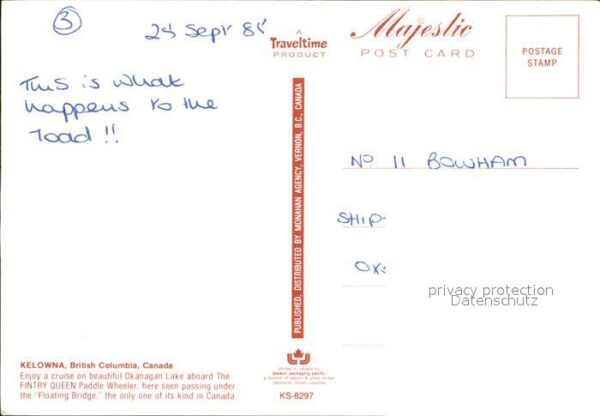 3
24 Sept 85
This is what
happens to the
road!!
A
Traveltime
PRODUCT
Majestic
POST CARD
POSTAGE
STAMP
PUBLISHED, DISTRIBUTED BY MONAHAN AGENCY, VERNON, B.C., CANADA
No 11 BOWHAM
SHIP-
OX
privacy protection
Datenschutz
KELOWNA, British Columbia, Canada
Enjoy a cruise on beautiful Okanagan Lake aboard The
FINTRY QUEEN Paddle Wheeler, here seen passing under
the "Floating Bridge," the only one of its kind in Canada.
printed in canada by
lawson packaging pacific
a division of lawson & jones limited
vancouver, british columbia
KS-8297